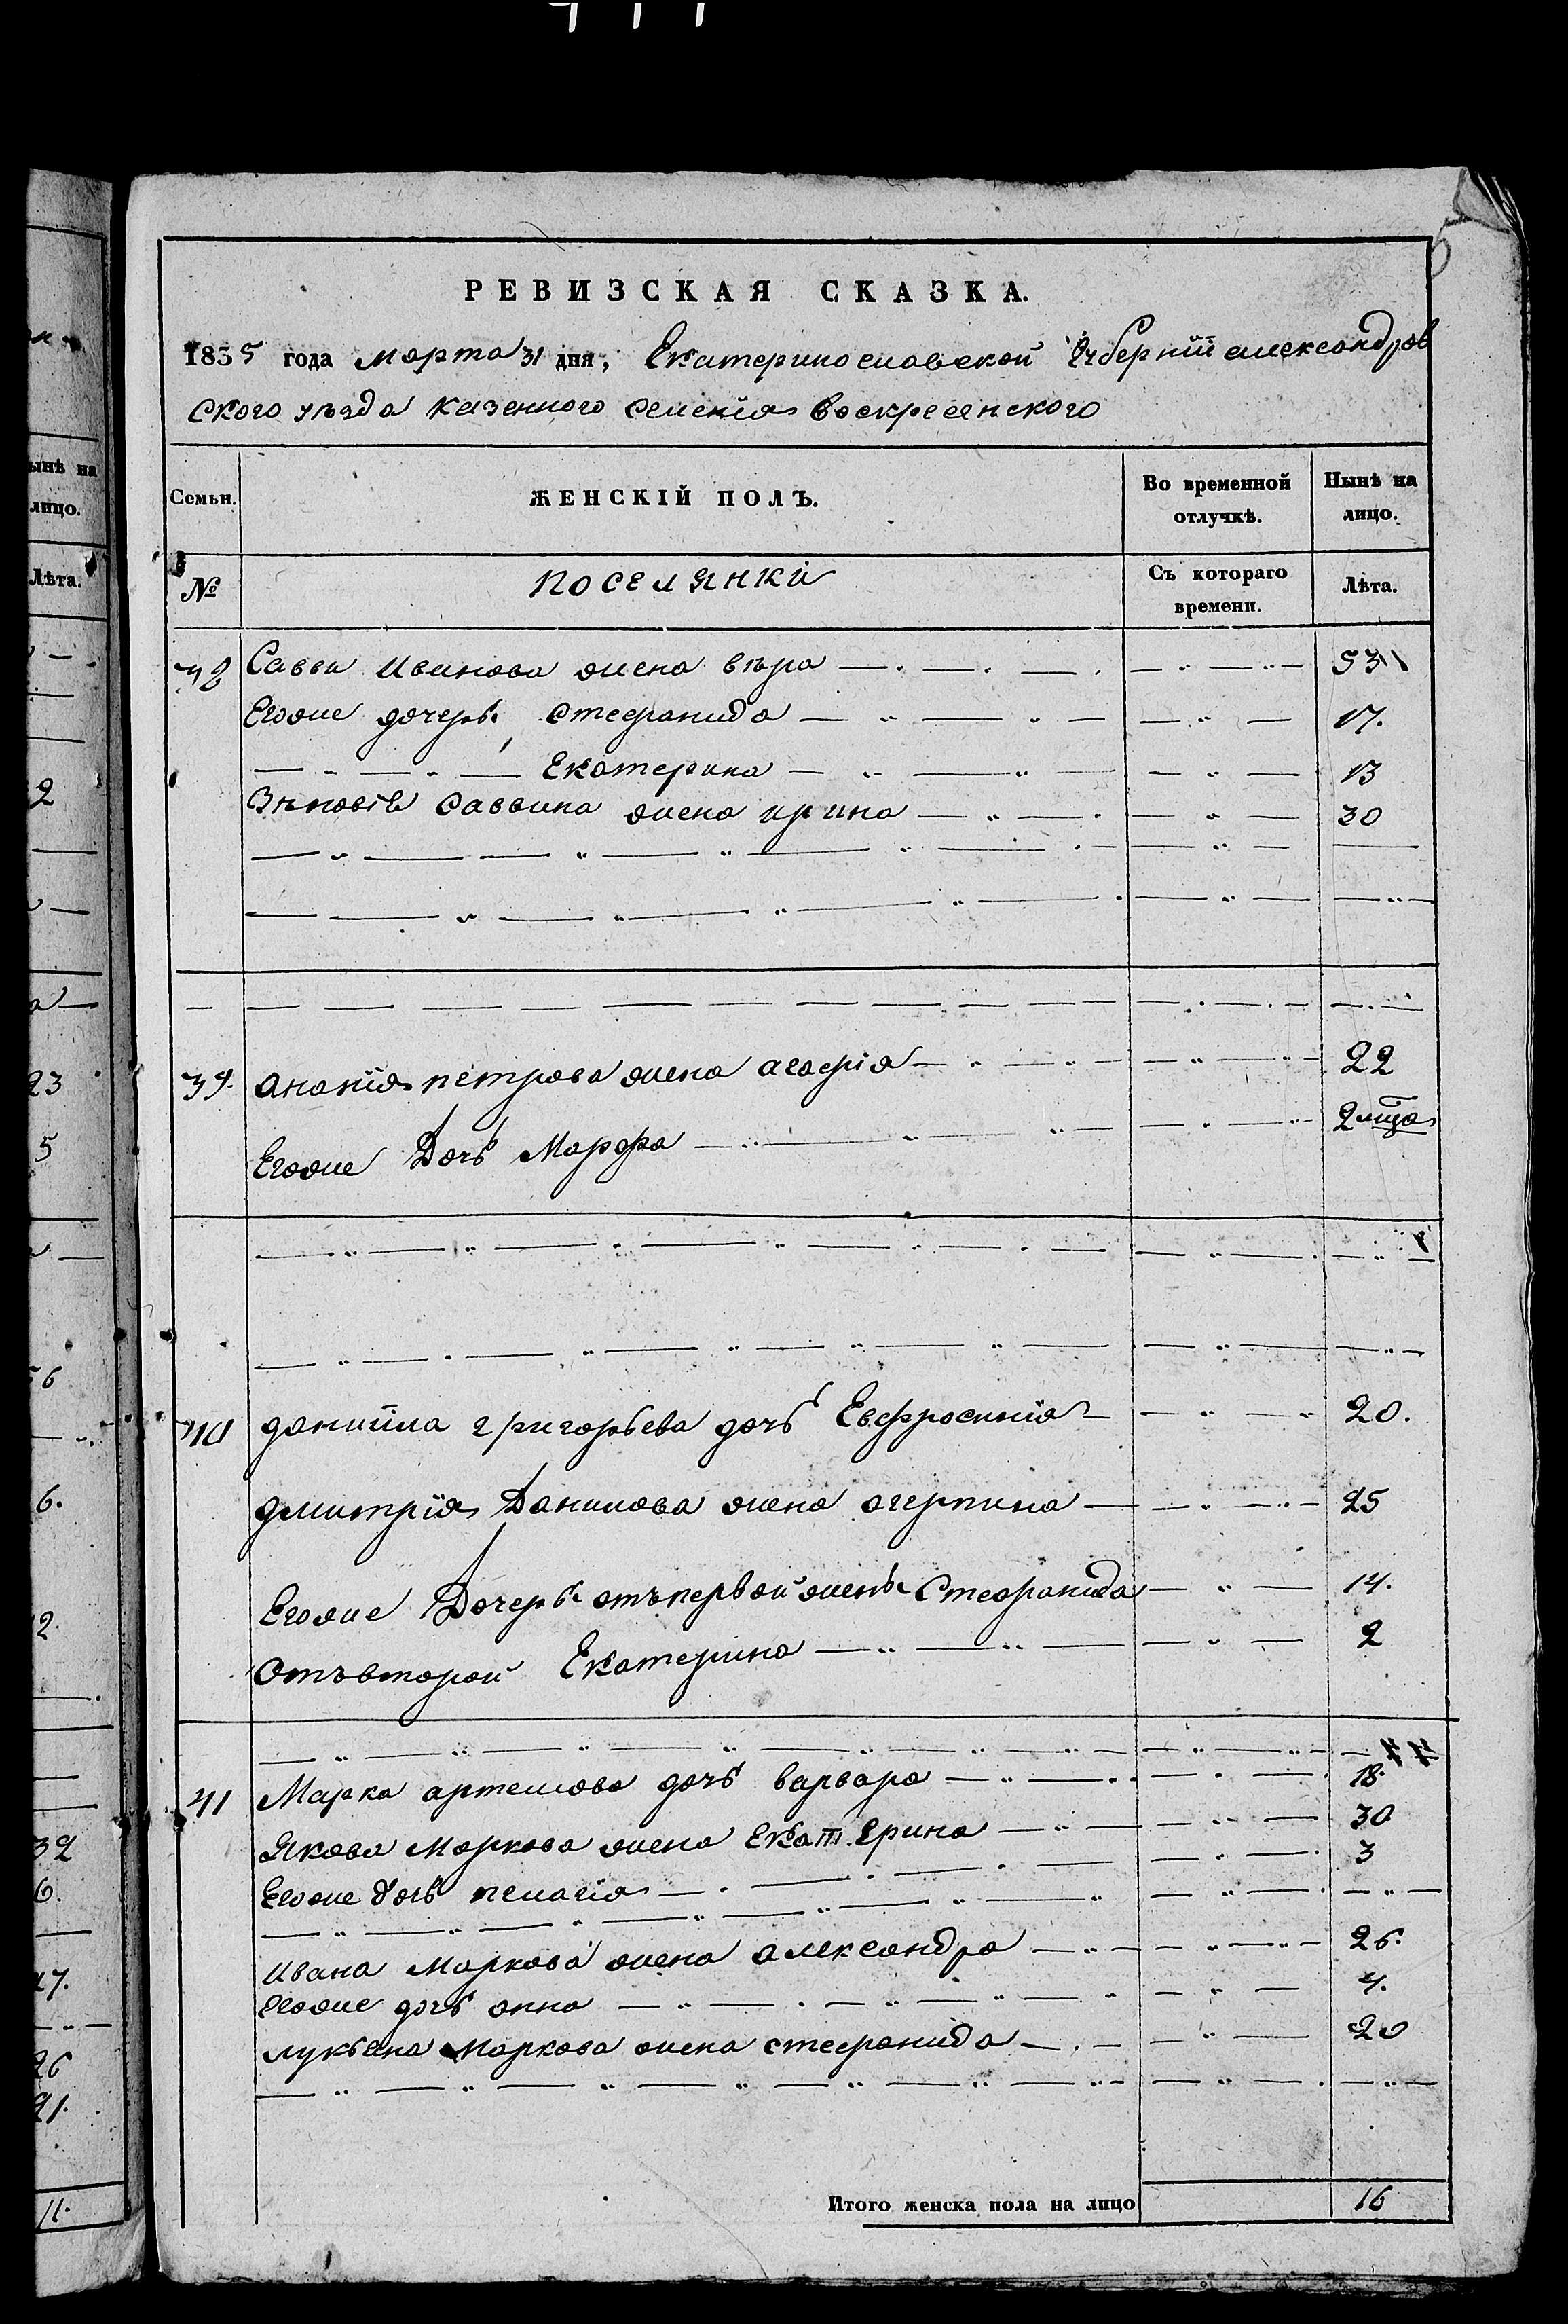 РЕВИЗСКАЯ СКАЗКА.
1835 года марта 31 дня, Екатеринославской Губернїи александров
ского уѣзда казенного селенїя воскресенского
Семьи. ЖЕНСКІЙ ПОЛЪ. Во временной отлучкѣ. Нынѣ на лицо.
№ поселянки Съ котораго времени. Лѣта.
38 Саввы Иванова жена вѣра 53
Егоже дочери стефанида 17.
Екатерина 13
Зѣновія саввина жена ирина 30
39. ананїя петрова жена агафія 22
Егоже Дочь Марфа 2 мца
40 данїила григорьева дочь Евфросинїя 20.
дмитрїя Данилова жена агерпина 25
Егоже Дочери отъ первой жены Стефанида 14.
отъ второй Екатерина 2
41 Марка артемова дочь варвара 18.
Якова Маркова жена Екатерина 30
Егоже дочь пелагїя 3
ивана Маркова жена александра 26.
Егоже дочь анна 4.
лукьяна Маркова жена стефанида 20
Итого женска пола на лицо 16
ынѣ на
лицо.
Лѣта.
2
23
5
56
6.
2.
32
6.
47.
26
21.
11.